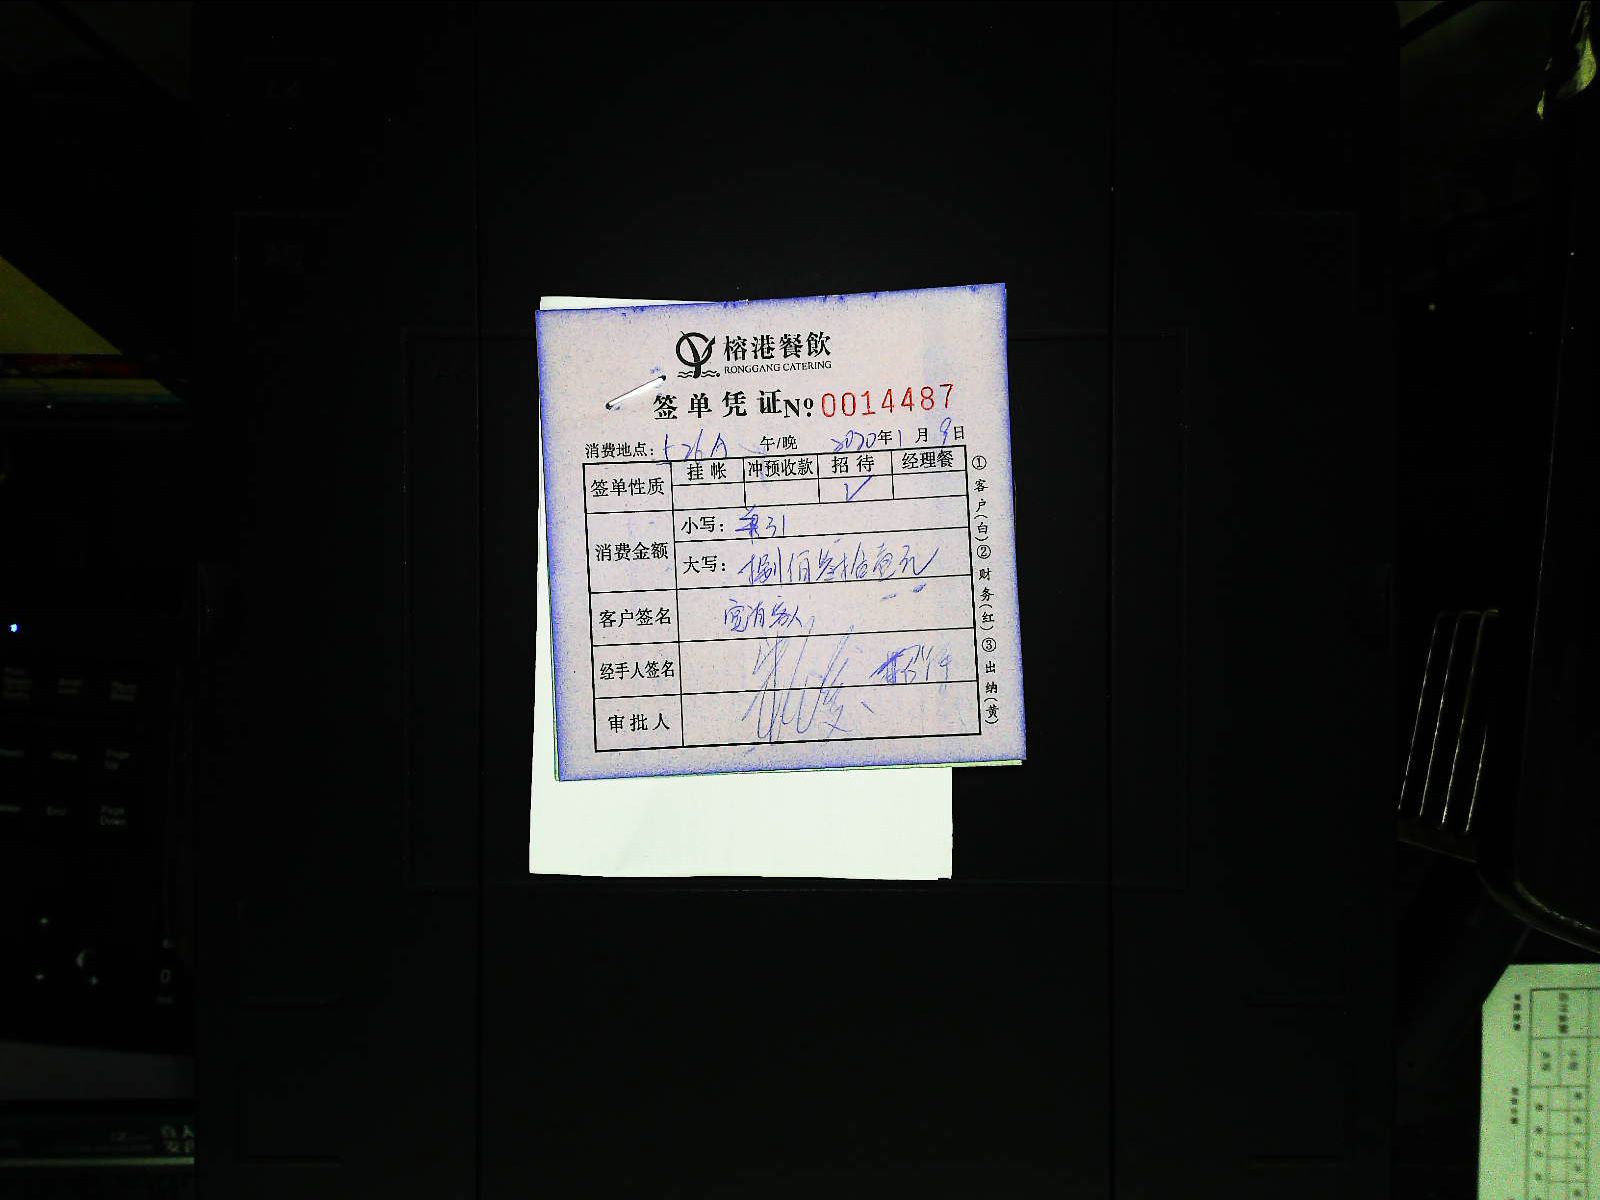 榕港餐飲
RONGGANG CATERING
签单凭证 No 0014487
消费地点：526A 午/晚 2020年1月9日
签单性质 挂帐 冲预收款 招待 经理餐
✓
消费金额 小写：831
大写：捌佰叁拾壹元
客户签名
经手人签名 招待
审批人
①客户(白)②财务(红)③出纳(黄)
Home
Page Up
End
Page Down